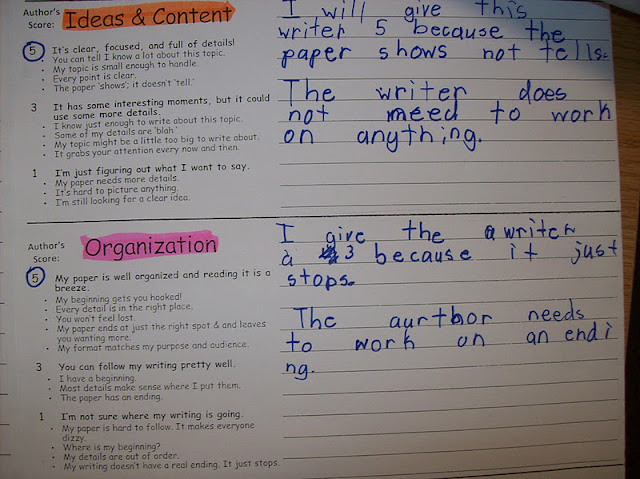 Author's
Score:
Ideas & Content
5
It's clear, focused, and full of details!
• You can tell I know a lot about this topic.
• My topic is small enough to handle.
• Every point is clear.
• The paper 'shows'; it doesn't 'tell.'
3
It has some interesting moments, but it could
use some more details.
• I know just enough to write about this topic.
• Some of my details are 'blah'
• My topic might be a little too big to write about.
• It grabs your attention every now and then.
1
I'm just figuring out what I want to say.
• My paper needs more details.
• It's hard to picture anything.
• I'm still looking for a clear idea.
I will give this
writer 5 because the
paper shows not tells.
The writer does
not need to work
on anything.
Author's
Score:
Organization
5
My paper is well organized and reading it is a
breeze.
• My beginning gets you hooked!
• Every detail is in the right place.
• You won't feel lost.
• My paper ends at just the right spot & and leaves
you wanting more.
• My format matches my purpose and audience.
3
You can follow my writing pretty well.
• I have a beginning.
• Most details make sense where I put them.
• The paper has an ending.
1
I'm not sure where my writing is going.
• My paper is hard to follow. It makes everyone
dizzy.
• Where is my beginning?
• My details are out of order.
• My writing doesn't have a real ending. It just stops.
I give the a writer
a 3 because it just
stops.
The aurthor needs
to work on an endi
ng.